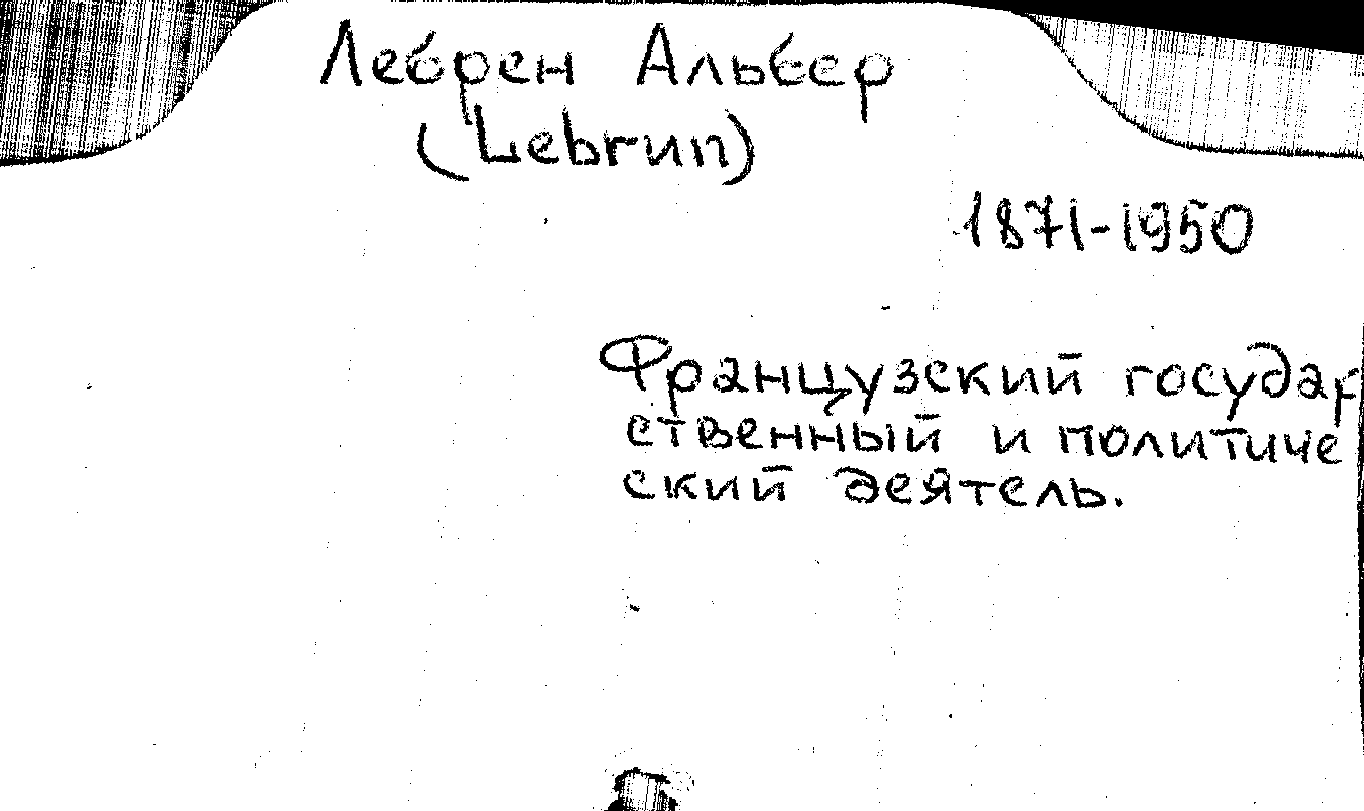 Лебрен Альбер
(Lebrun)
1871-1950
Французский государ
ственный и политиче
ский деятель.